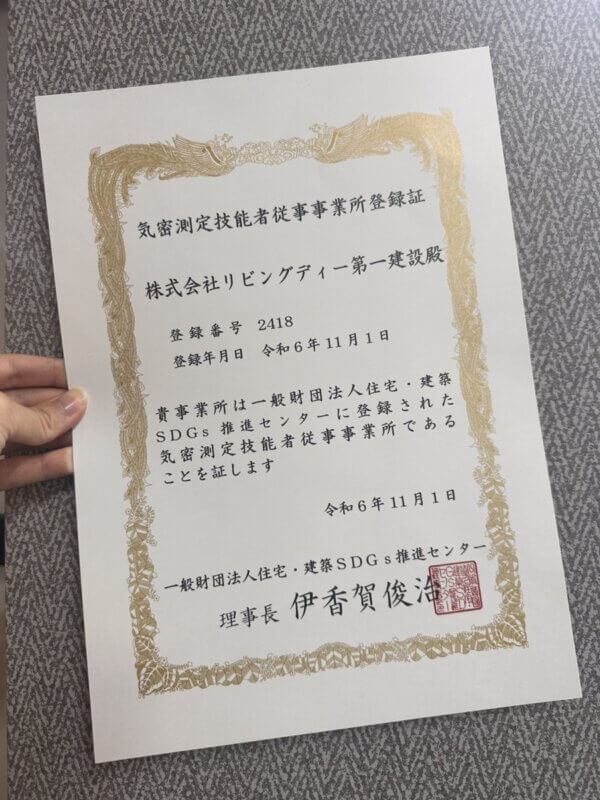 気密測定技能者従事事業所登録証
株式会社リビングディー第一建設殿
登録番号 2418
登録年月日 令和6年11月1日
貴事業所は一般財団法人住宅・建築
SDGs推進センターに登録された
気密測定技能者従事事業所である
ことを証します
令和6年11月1日
一般財団法人住宅・建築SDGs推進センター
理事長 伊香賀俊治